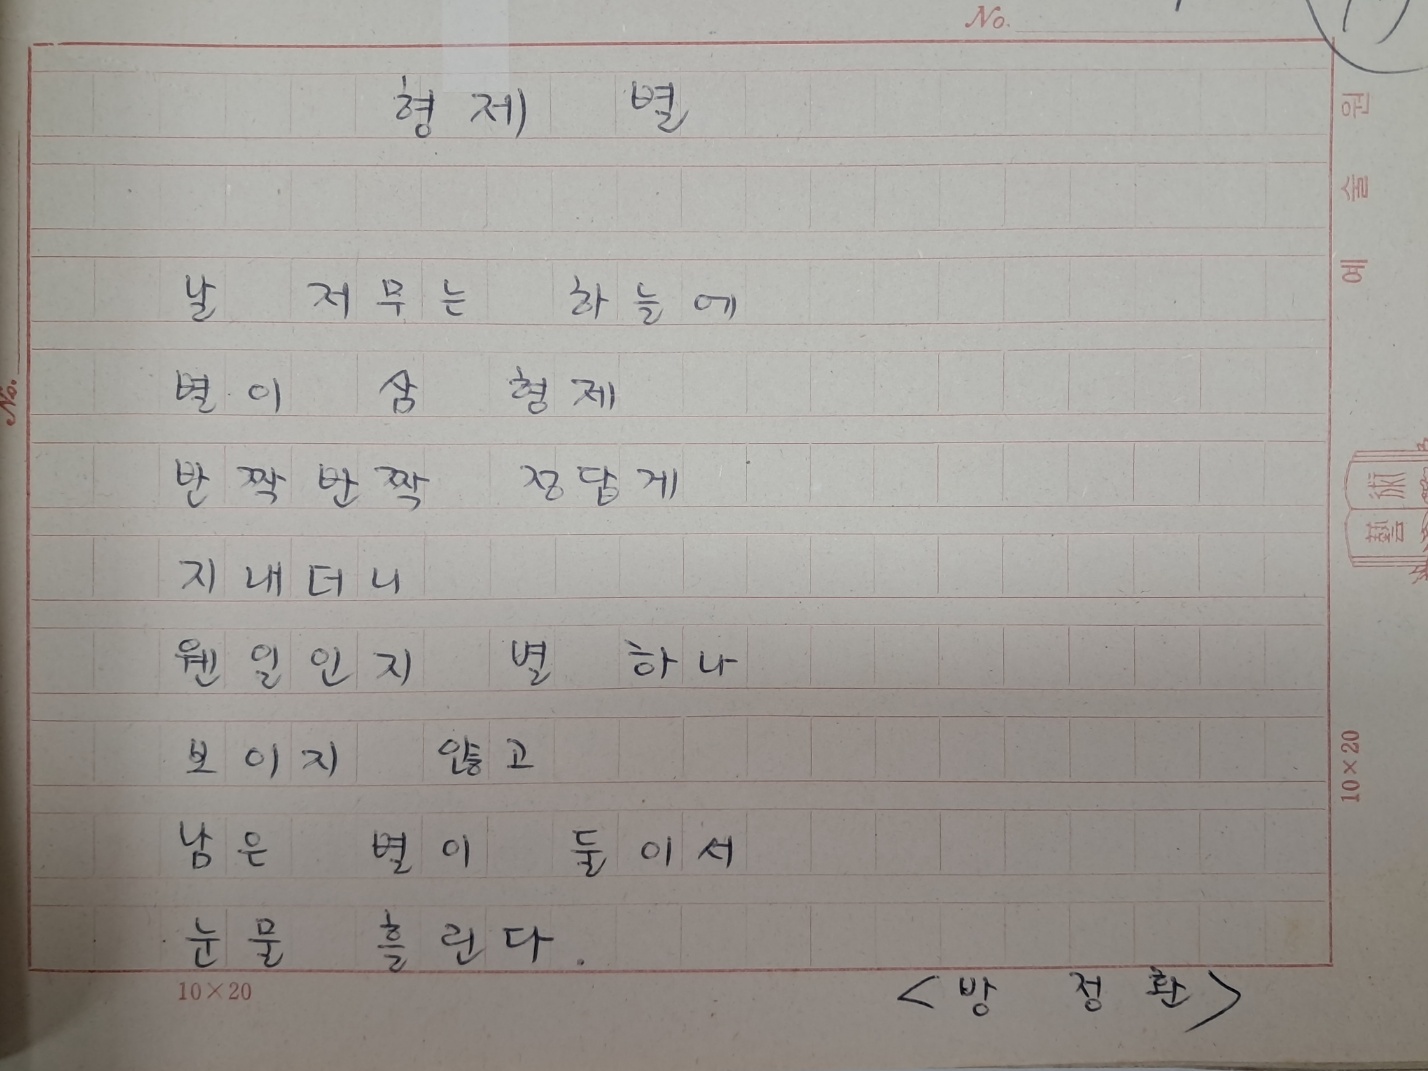 No.
형제 별
날 저무는 하늘에
별이 삼 형제
반짝반짝 정답게
지내더니
웬일인지 별 하나
보이지 않고
남은 별이 둘이서
눈물 흘린다.
10×20
<방 정환>
No.
예술원
藝術
10×20